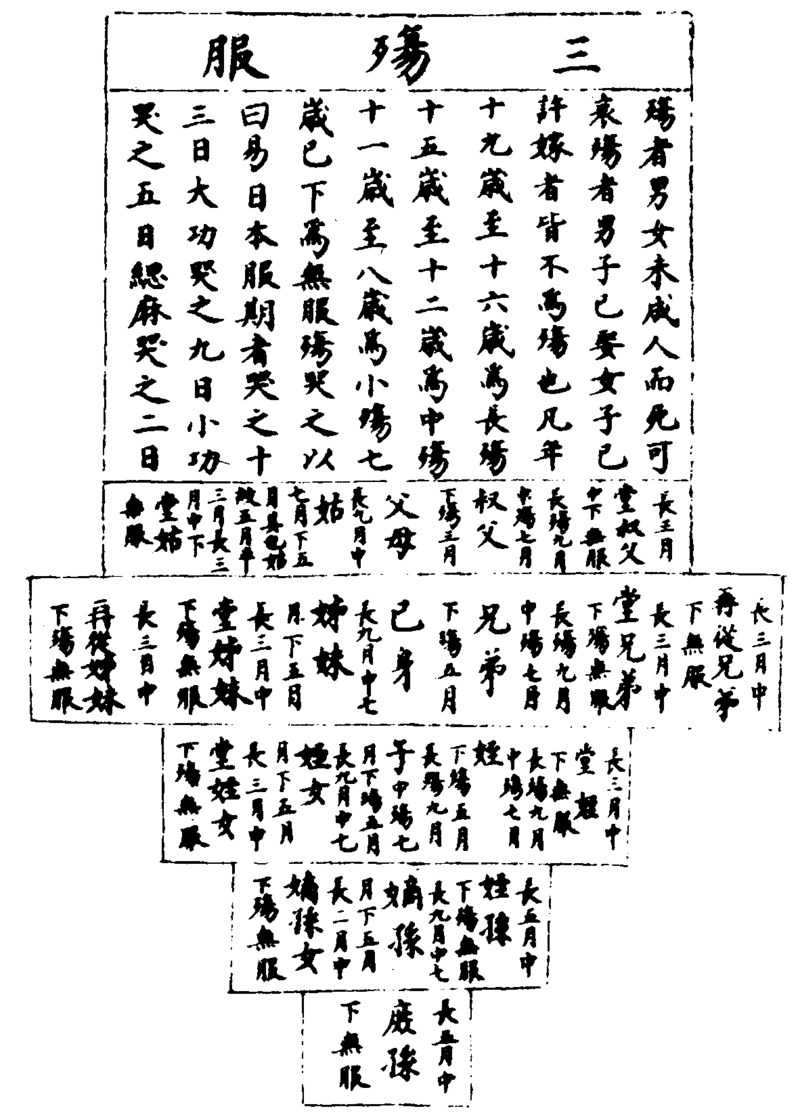 三殤服
殤者男女未成人而死可
哀殤者男子已娶女子已
許嫁者皆不為殤也凡年
十九歲至十六歲為長殤
十五歲至十二歲為中殤
十一歲至八歲為小殤七
歲已下為無服殤哭之以
曰易日本服期者哭之十
三日大功哭之九日小功
哭之五日緦麻哭之二日
長三月
堂叔父
中下無服
長殤九月
中殤七月
叔父
下殤三月
父母
長九月中
姑
七月下五
月其也姑
五月卒
三月長三
月中下
堂姑
無服
長三月中
再從兄弟
下無服
長三月中
堂兄弟
下殤無服
長殤九月
中殤七月
兄弟
下殤五月
己身
長九月中七
姊妹
月下五月
長三月中
堂姊妹
下殤無服
長三月中
再從姊妹
下殤無服
長三月中
堂姪
下無服
長殤九月
中殤七月
姪
下殤五月
長殤九月
子中殤七
月下殤五月
長九月中七
姪女
月下五月
長三月中
堂姪女
下殤無服
長五月中
姪孫
下殤無服
長九月中七
嫡孫
月下五月
長二月中
嫡孫女
下殤無服
長五月中
庶孫
下無服